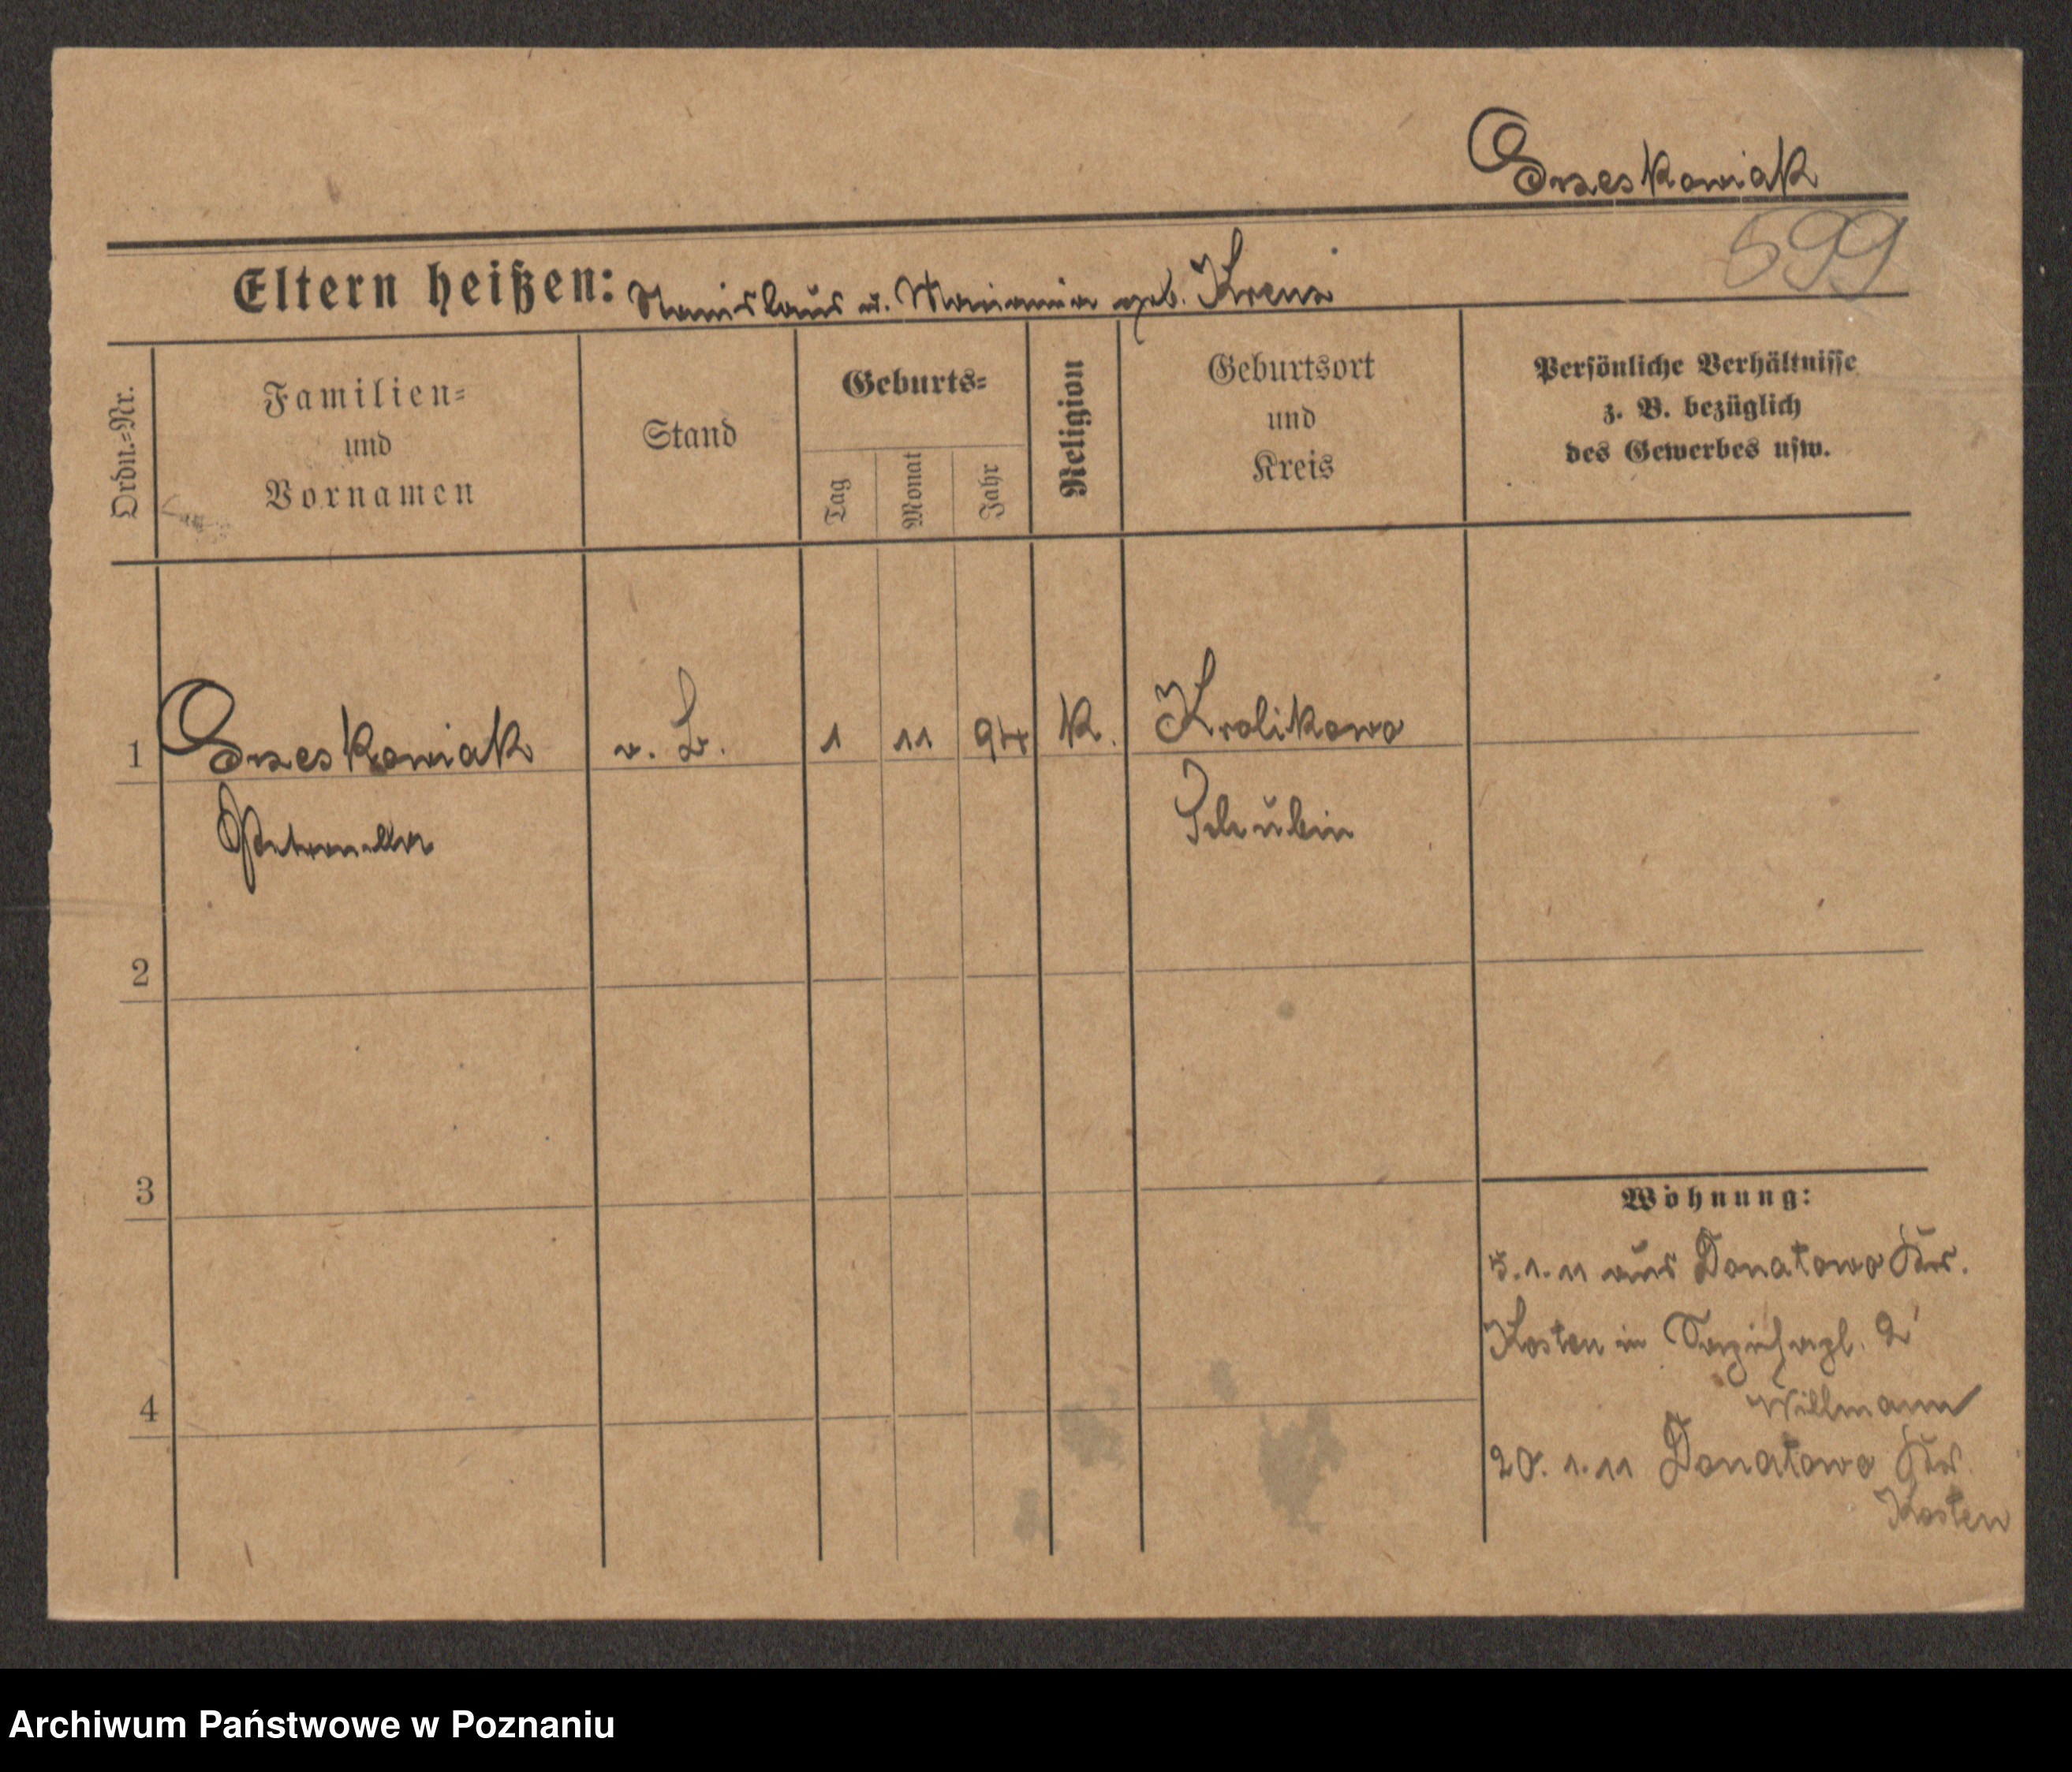 Grzeskowiak
599
Eltern heißen: Stanislaus u. Marianna geb. Krenz
Ordn.=Nr.
Familien=
und
Vornamen
Stand
Geburts=
Tag
Monat
Jahr
Religion
Geburtsort
und
Kreis
Persönliche Verhältnisse
z. B. bezüglich
des Gewerbes usw.
1 Grzeskowiak v. L. 1 11 94 K. Krolikowo
Petronella Schubin
2
3
4
Wohnung:
5.1.11 aus Donatowo Krs.
Kosten in 2
Willmann
20.1.11 Donatowo Krs.
Kosten
Archiwum Państwowe w Poznaniu